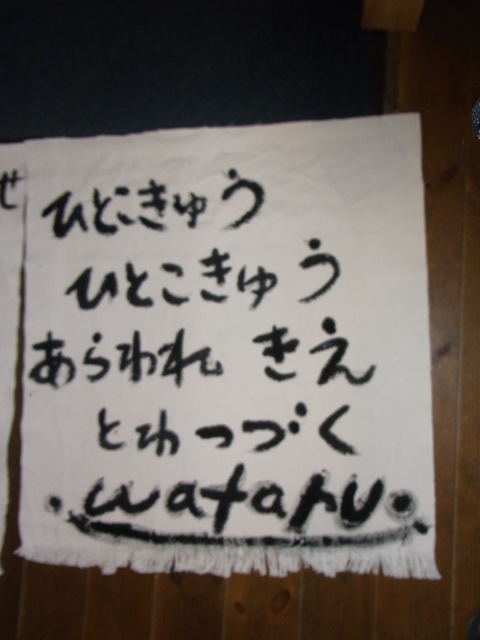 せ
ひとこきゅう
ひとこきゅう
あらわれ きえ
とわ つづく
wataru